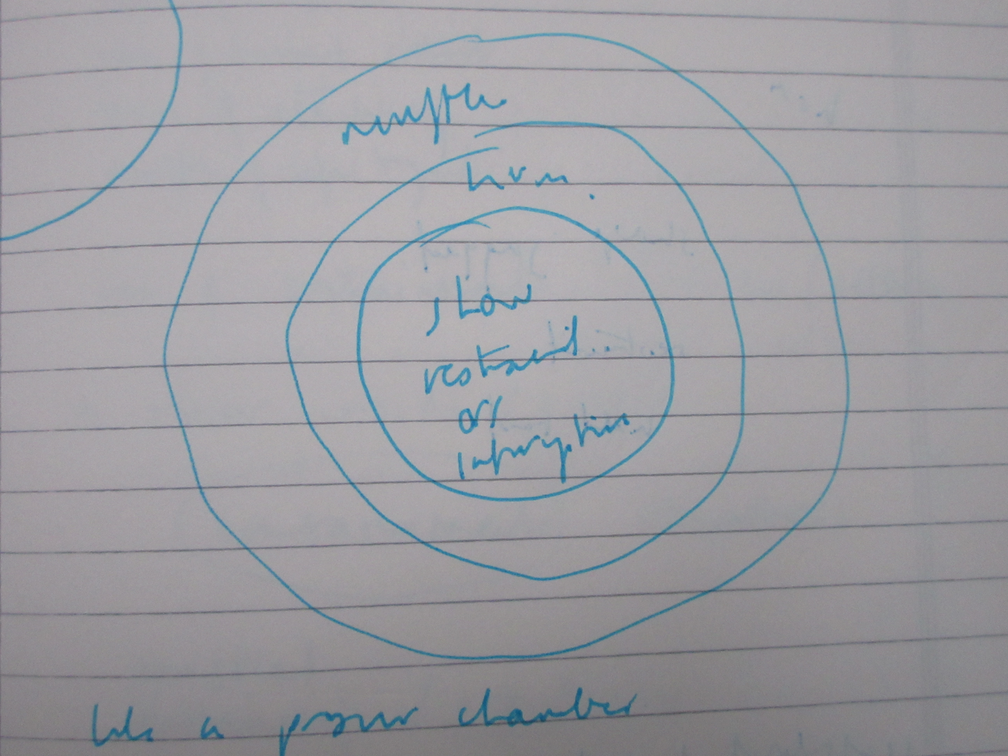 hum.
show
restraint..
or
interruption
like a pressure chamber